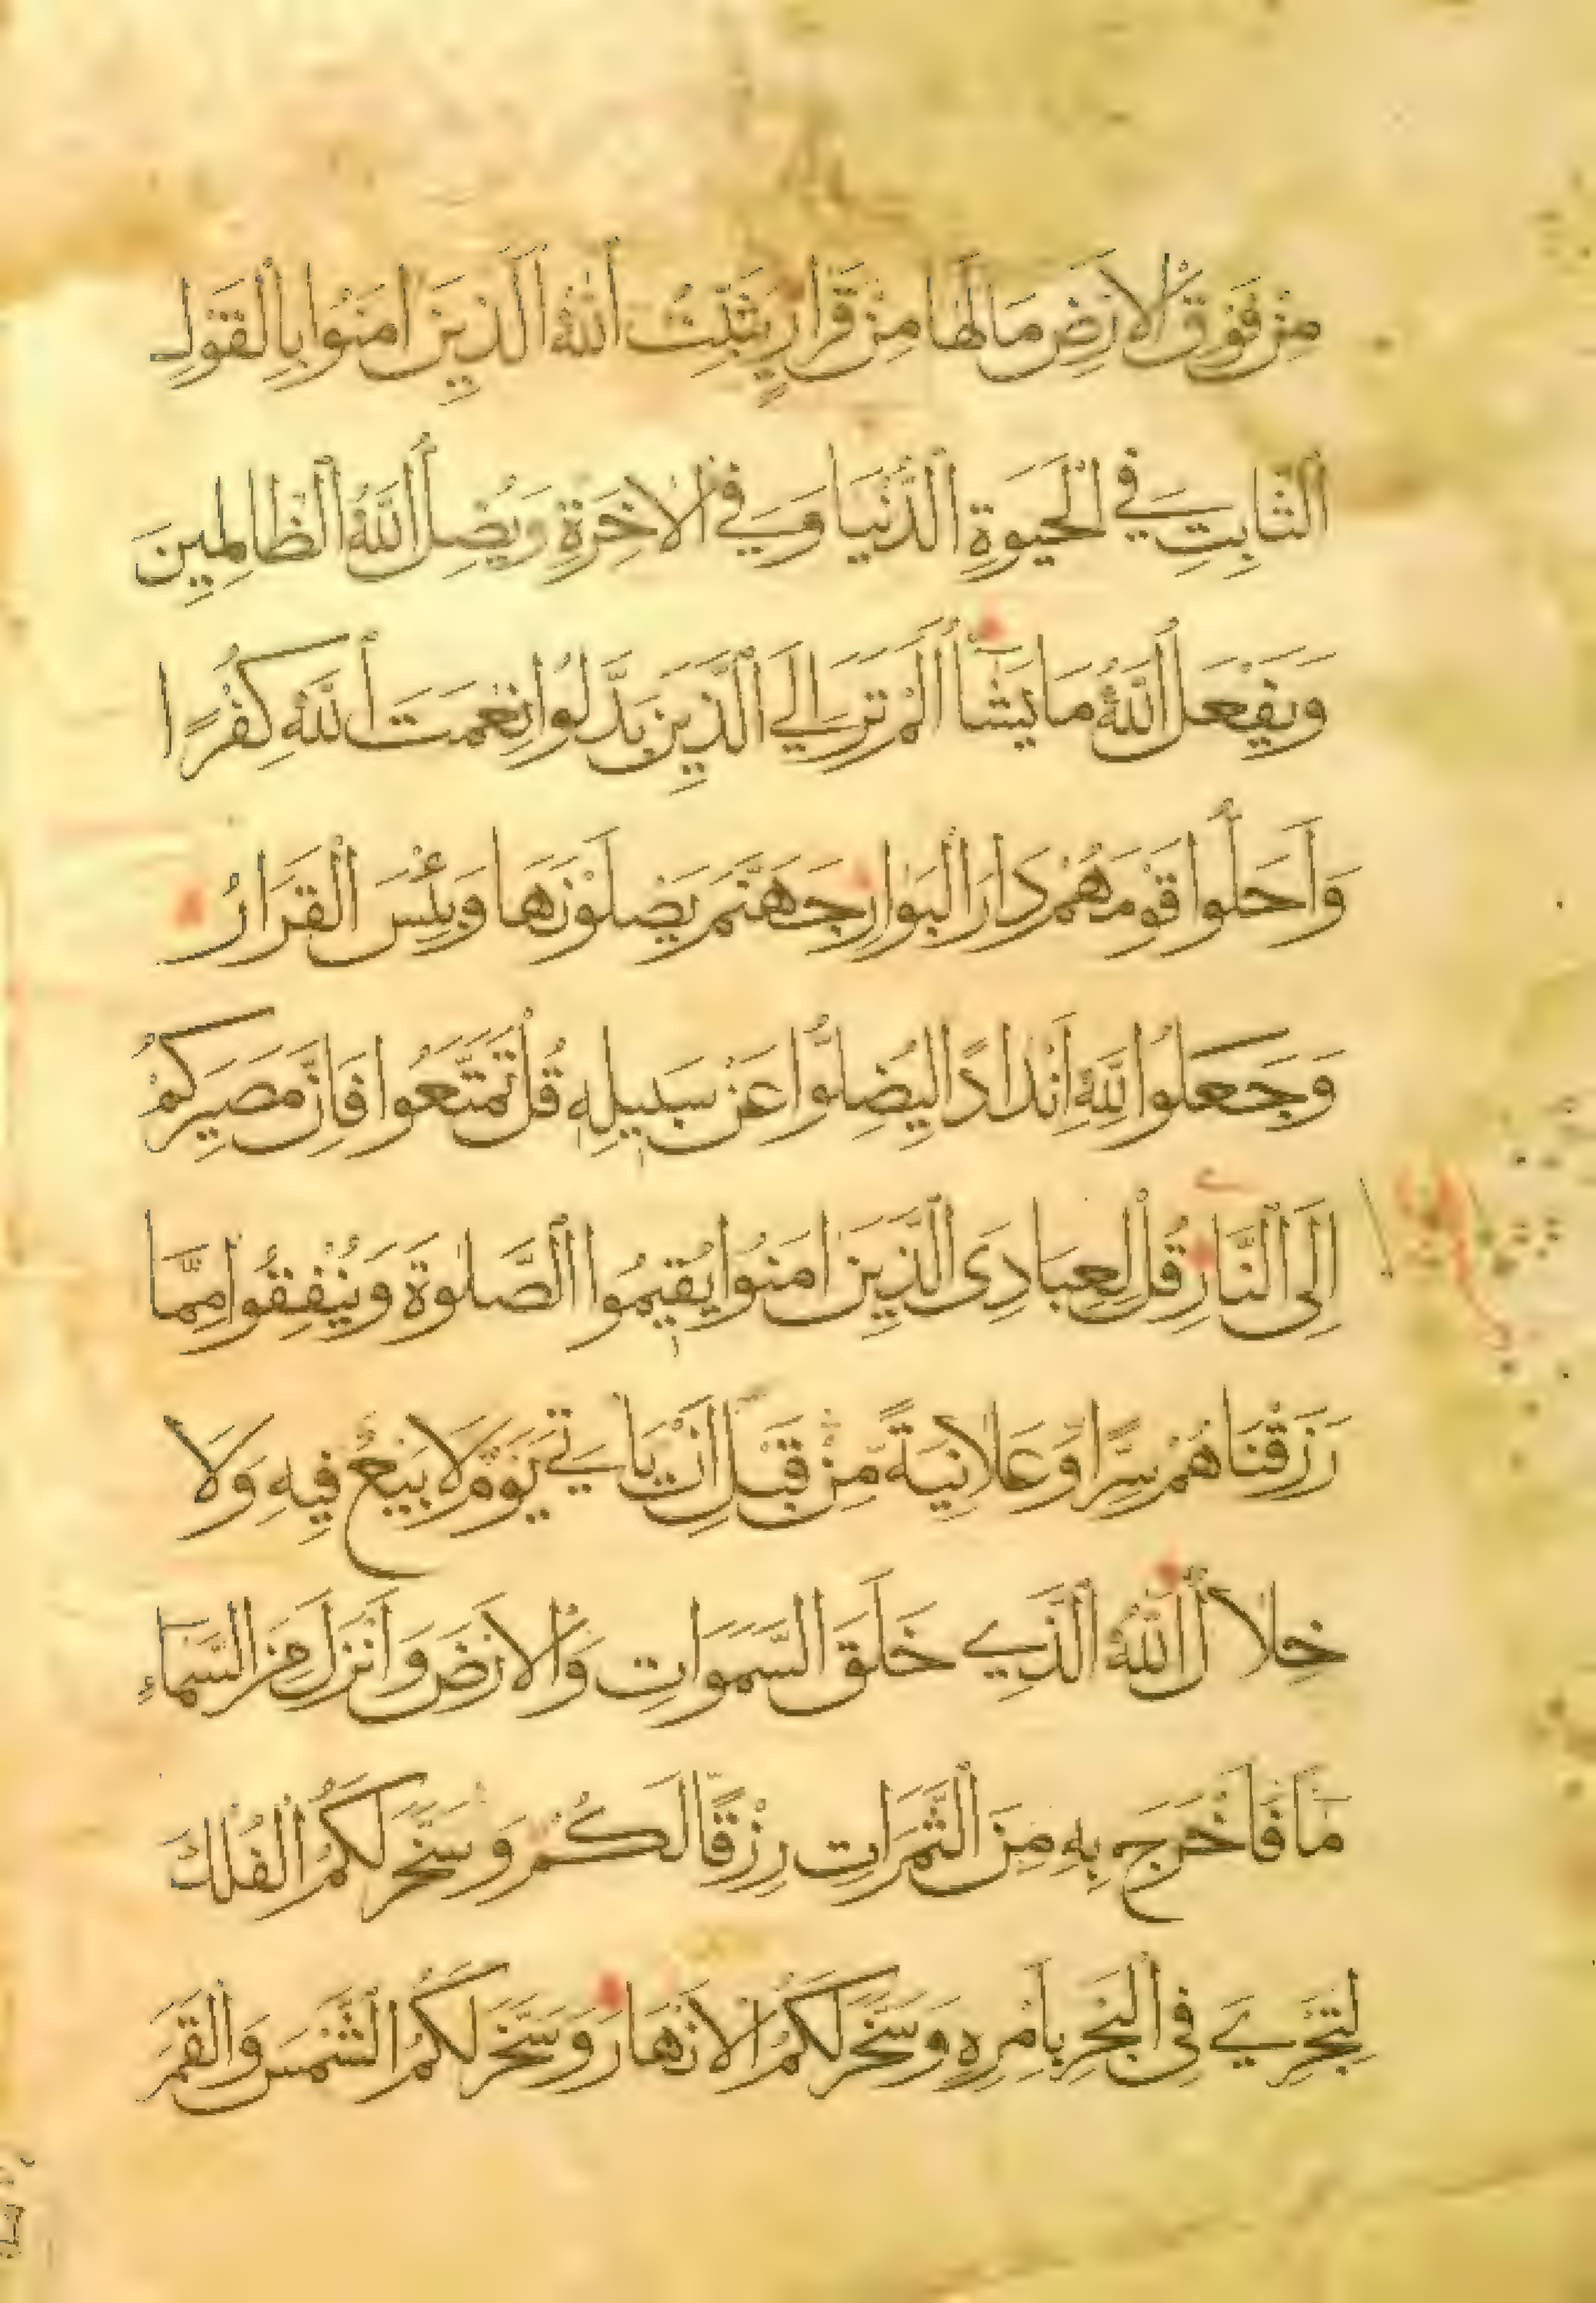 مِنْ فَوْقِ الْاَرْضِ مَا لَهَا مِنْ قَرَارٍ يُثَبِّتُ اللّٰهُ الَّذِيْنَ اٰمَنُوْا بِالْقَوْلِ
الثَّابِتِ فِي الْحَيٰوةِ الدُّنْيَا وَفِي الْاٰخِرَةِ وَيُضِلُّ اللّٰهُ الظَّالِمِينَ
وَيَفْعَلُ اللّٰهُ مَا يَشَآءُ اَلَمْ تَرَ اِلَي الَّذِيْنَ بَدَّلُوا نِعْمَتَ اللّٰهِ كُفْرًا
وَاَحَلُّوا قَوْمَهُمْ دَارَ الْبَوَارِ جَهَنَّمَ يَصْلَوْنَهَا وَبِئْسَ الْقَرَارُ
وَجَعَلُوا لِلّٰهِ اَنْدَادًا لِيُضِلُّوا عَنْ سَبِيلِهِ قُلْ تَمَتَّعُوا فَاِنَّ مَصِيرَكُمْ
اِلَى النَّارِ قُلْ لِعِبَادِيَ الَّذِيْنَ اٰمَنُوا يُقِيمُوا الصَّلٰوةَ وَيُنْفِقُوا مِمَّا
رَزَقْنَاهُمْ سِرًّا وَعَلَانِيَةً مِنْ قَبْلِ اَنْ يَاْتِيَ يَوْمٌ لَا بَيْعٌ فِيهِ وَلَا
خِلَالٌ اَللّٰهُ الَّذِي خَلَقَ السَّمَوَاتِ وَالْاَرْضَ وَاَنْزَلَ مِنَ السَّمَاءِ
مَآءً فَاَخْرَجَ بِهِ مِنَ الثَّمَرَاتِ رِزْقًا لَكُمْ وَسَخَّرَ لَكُمُ الْفُلْكَ
لِتَجْرِيَ فِي الْبَحْرِ بِاَمْرِهِ وَسَخَّرَ لَكُمُ الْاَنْهَارَ وَسَخَّرَ لَكُمُ الشَّمْسَ وَالْقَمَرَ